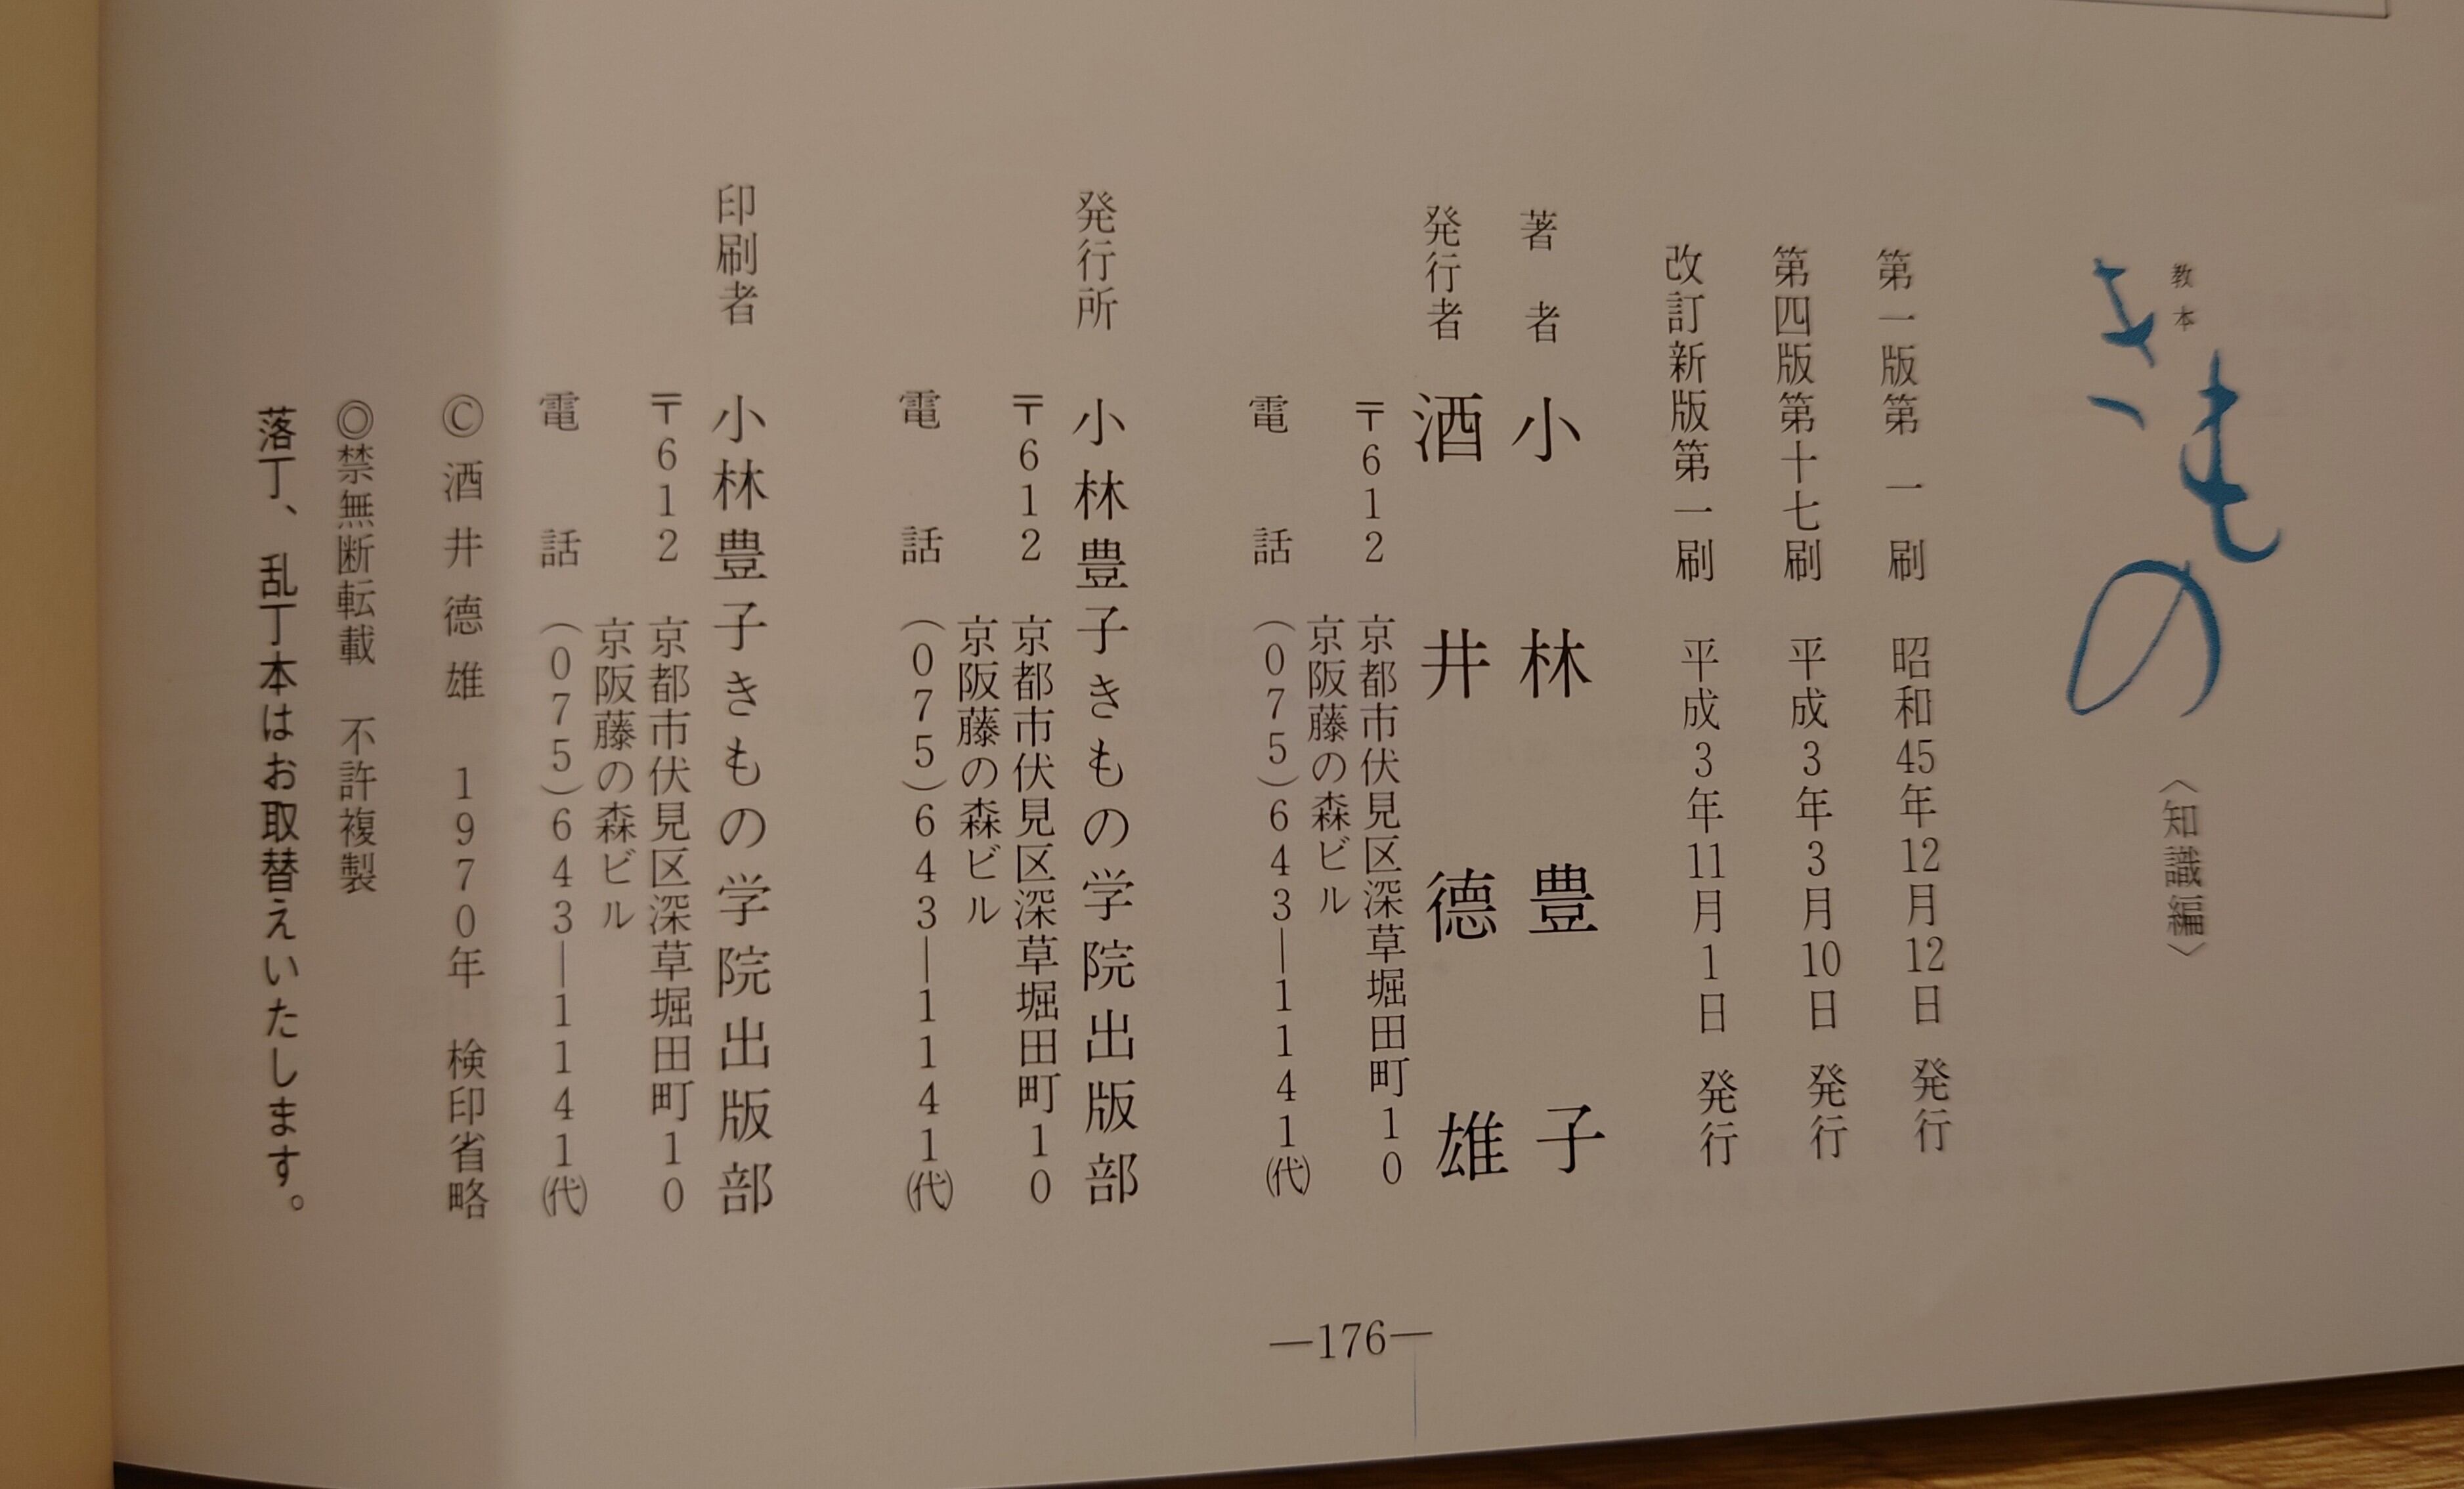 教本
きもの
〈知識編〉
第一版第一刷 昭和45年12月12日 発行
第四版第十七刷 平成3年3月10日 発行
改訂新版第一刷 平成3年11月1日 発行
著者 小林豊子
発行者 酒井德雄
〒612 京都市伏見区深草堀田町10
京阪藤の森ビル
電話 (075)643―1141(代)
発行所 小林豊子きもの学院出版部
〒612 京都市伏見区深草堀田町10
京阪藤の森ビル
電話 (075)643―1141(代)
印刷者 小林豊子きもの学院出版部
〒612 京都市伏見区深草堀田町10
京阪藤の森ビル
電話 (075)643―1141(代)
Ⓒ酒井德雄 1970年 検印省略
◎禁無断転載 不許複製
落丁、乱丁本はお取替えいたします。
―176―